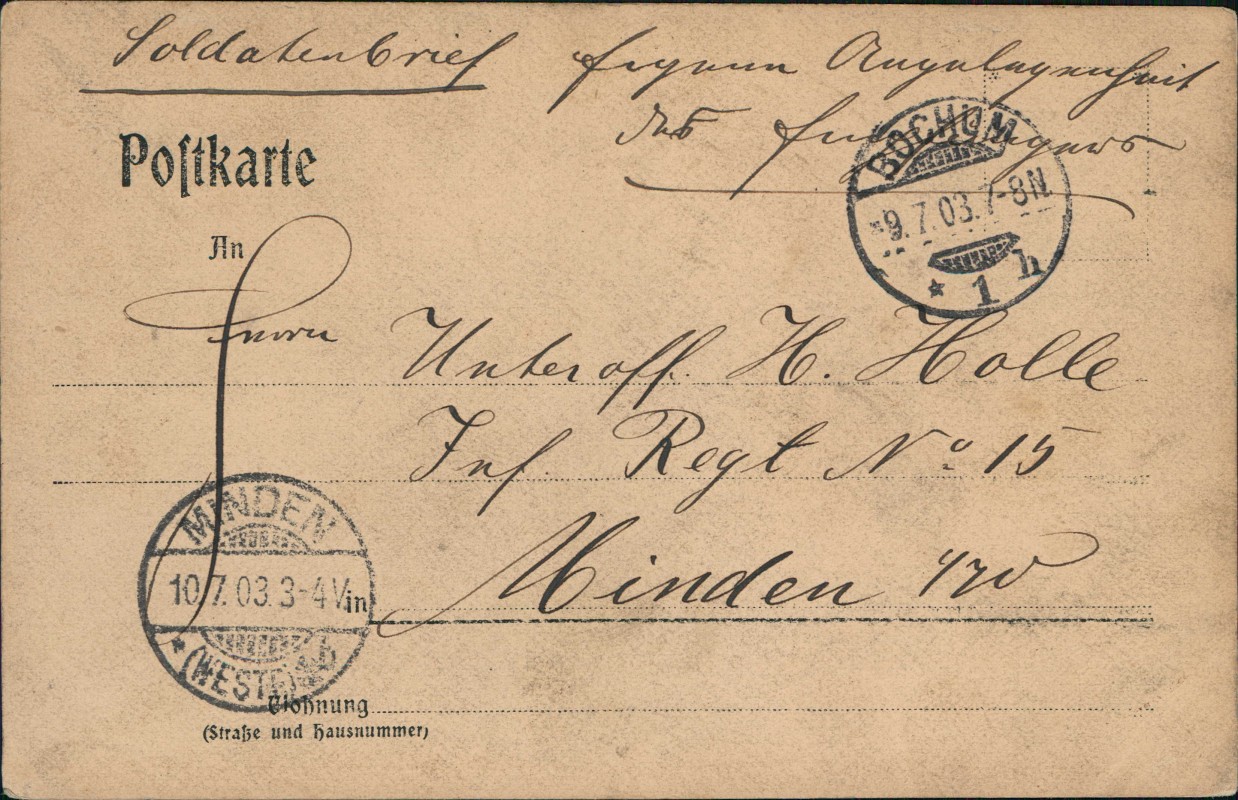 Soldatenbrief Eigene Angelegenheit
des Empfängers
Poſtkarte
BOCHUM
*9.7.03.7-8N.
* 1 h
An
Herrn
Unteroff. H. Holle
Inf. Regt No 15
MINDEN
10.7.03.3-4V
*(WESTF) *b
in
Minden i/W
Wohnung
(Straße und Hausnummer)